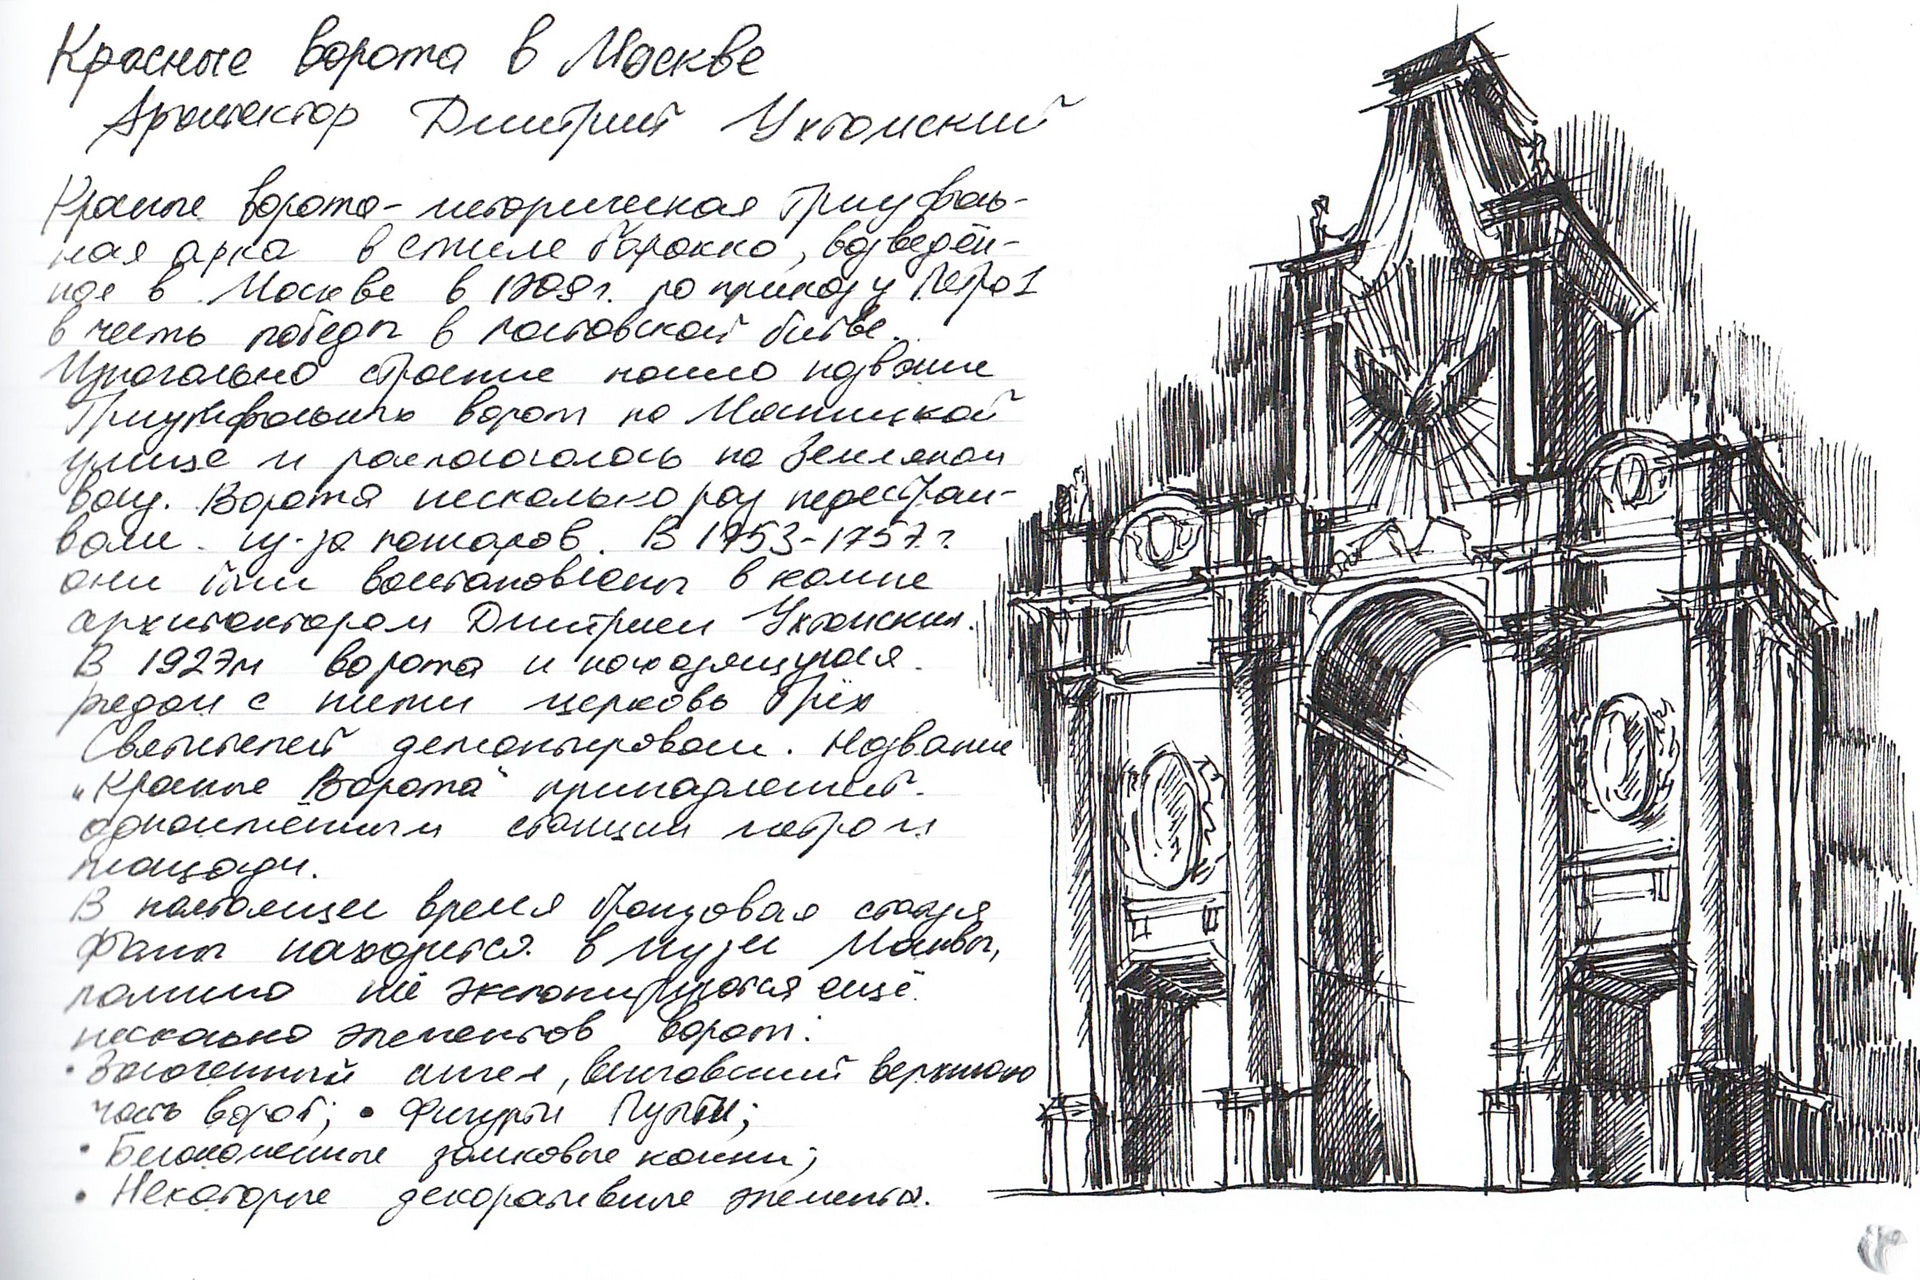 Красные ворота в Москве
Архитектор Дмитрий Ухтомский
Красные ворота - историческая триумфаль-
ная арка в стиле барокко, возведён-
ная в Москве в 1709г. по приказу Петра I
в честь победы в полтавской битве.
Изначально строение носило название
Триумфальных ворот на Мясницкой
улице и располагалось на Земляном
валу. Ворота несколько раз перестраи-
вали из-за пожаров. В 1753-1757 г.
они были восстановлены в камне
архитектором Дмитрием Ухтомским.
В 1927м ворота и находящуюся
рядом с ними церковь Трёх
Святителей демонтировали. Название
"Красные Ворота" принадлежит
одноимённым станции метро и
площади.
В настоящее время бронзовая статуя
Фамы находится в музее Москвы,
помимо неё экспонируются ещё
несколько элементов ворот:
• Золоченный ангел, венчавший верхнюю
часть ворот; • Фигуры Путти;
• Белокаменные замковые камни;
• Некоторые декоративные элементы.